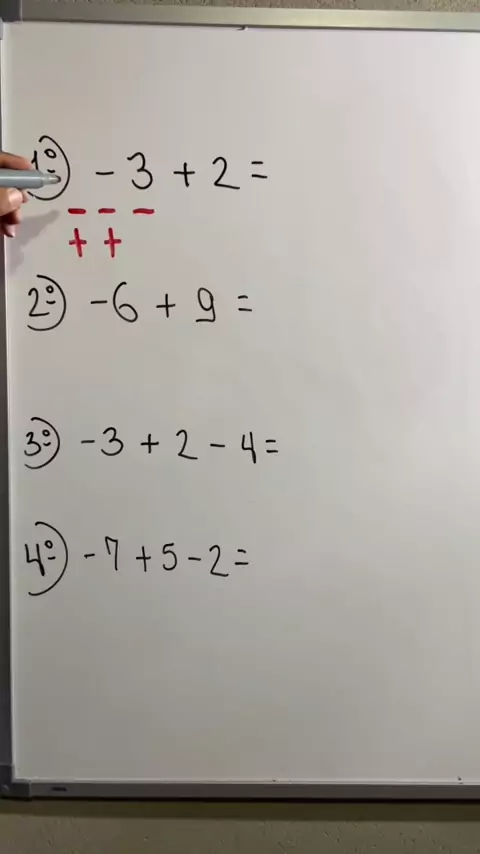 1º) - 3 + 2 =
- - -
+ +
2º) -6 + 9 =
3º) -3 + 2 - 4 =
4º) -7 + 5 - 2 =